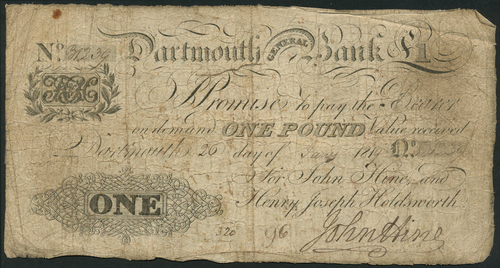 No. Dartmouth GENERAL Bank £1
I Promise to pay the Bearer
on demand ONE POUND Value received
Dartmouth 26 day of No.
For John Hine and
Henry Joseph Holdsworth
ONE
320 96 John Hine